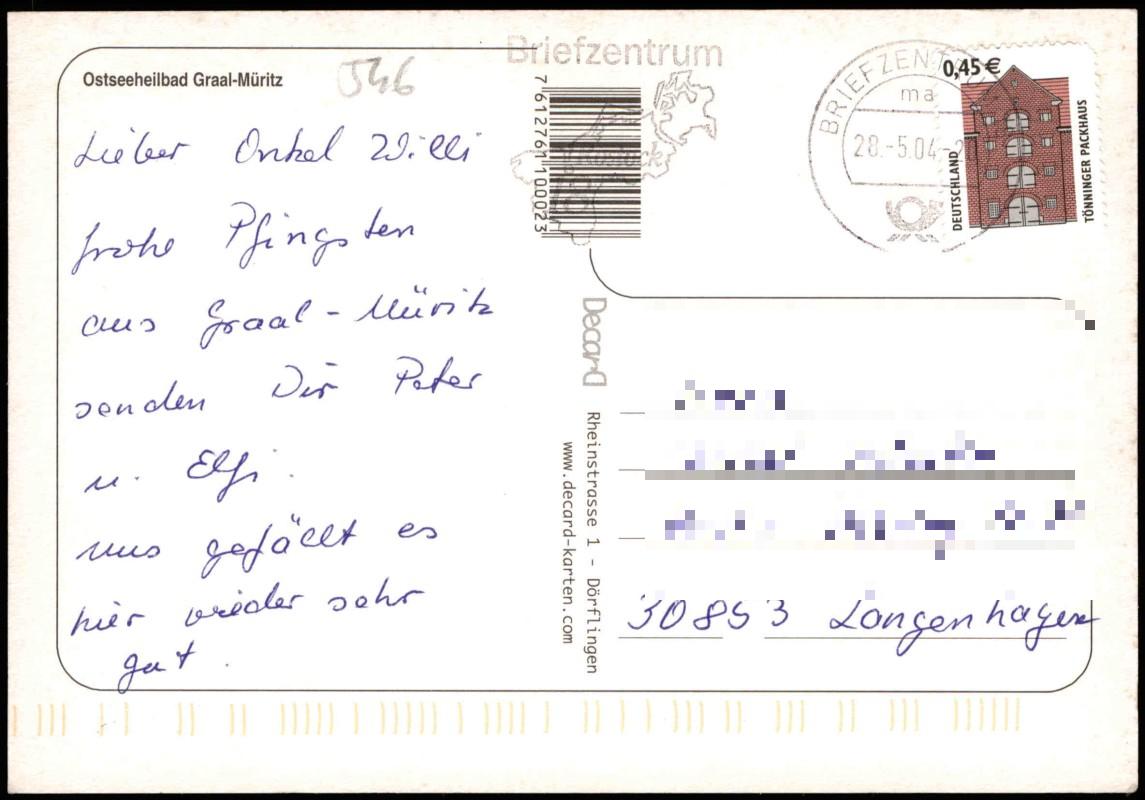 Ostseeheilbad Graal-Müritz
546
Lieber Onkel Willi
frohe Pfingsten
aus Graal-Müritz
senden Dir Peter
u. Elfi.
uns gefällt es
hier wieder sehr
gut.
Briefzentrum
Rostock
18
7 612761 100023
BRIEFZENTRUM
ma
28.-5.04.-2
0,45 €
DEUTSCHLAND
TÖNNINGER PACKHAUS
Decard
Rheinstrasse 1 - Dörflingen
www.decard-karten.com
30853 Langenhagen